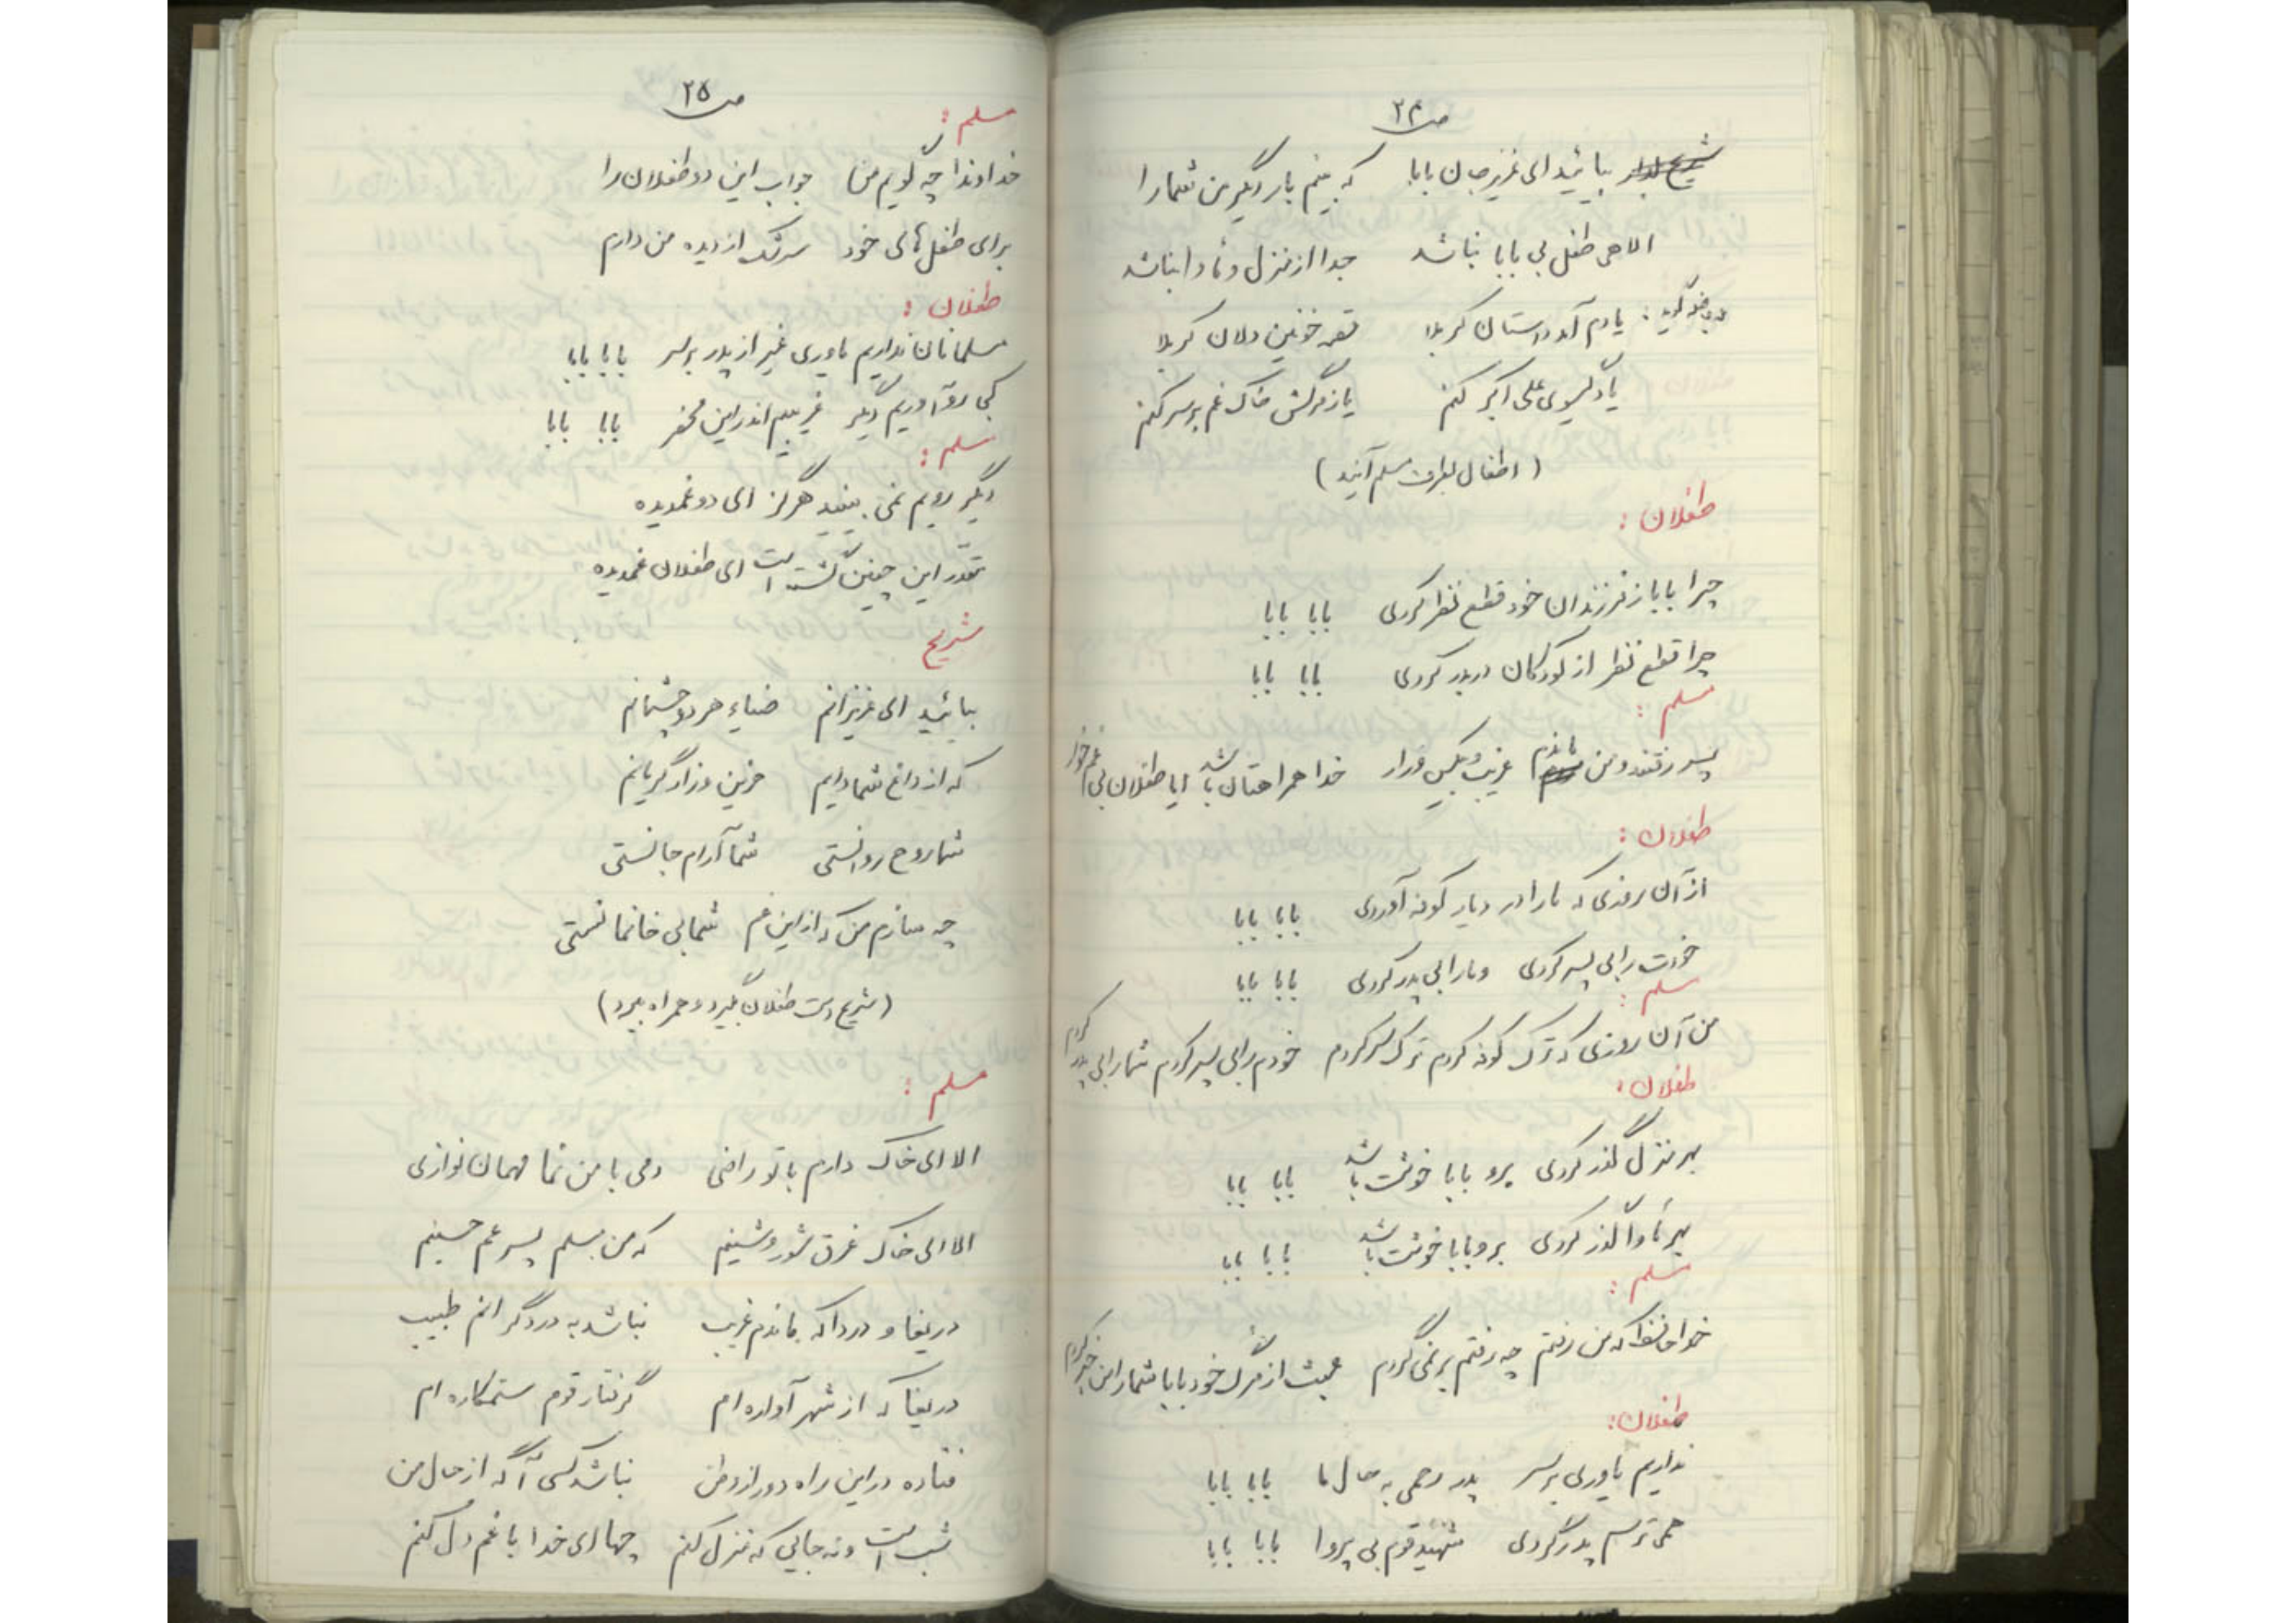 ص ۲۴
بیائید ای عزیز جان بابا    که بینم بار دیگر من شما را
الاهی طفل بی بابا نباشد    جدا از منزل و مأوا نباشد
یادم آمد داستان کربلا    قصه خونین دلان کربلا
یاد گیسوی علی اکبر کنم    یا ز مرگش خاک غم بر سر کنم
(اطفال بطرف مسلم آیند)
طفلان :
چرا بابا ز فرزندان خود قطع نظر کردی    بابا بابا
چرا قطع نظر از کودکان دربدر کردی    بابا بابا
مسلم :
پسر رفتند و من ماندم غریب و بیکس و زار    خدا همراهتان باشد ایا طفلان بی غمخوار
طفلان :
از آن روزی که ما را در دیار کوفه آوردی    بابا بابا
خودت را بی پسر کردی    و ما را بی پدر کردی    بابا بابا
مسلم :
من آن روزی که ترک کوفه کردم ترک سر کردم    خودم را بی پسر کردم شما را بی پدر کردم
طفلان :
بهر منزل گذر کردی    برو بابا خوشت باشد    بابا بابا
بهر مأوا گذر کردی    برو بابا خوشت باشد    بابا بابا
مسلم :
خدا حافظ که من رفتم    چه رفتم بر نمی گردم    عبث از مرگ خود بابا شما را من خبر کردم
طفلان :
نداریم یاوری بر سر    پدر رحمی به حال ما    بابا بابا
همی ترسم پدر گردی    شهید قوم بی پروا    بابا بابا
ص ۲۵
مسلم :
خداوندا چه گویم من    جواب این دو طفلان را
برای طفل های خود    سرشک از دیده من دارم
طفلان :
مسلمانان نداریم یاوری غیر از پدر بر سر    بابا بابا
کجا رو آوریم دیگر    غریبیم اندر این محضر    بابا بابا
مسلم :
دگر رویم نمی بینید هرگز ای دو غمدیده
مقدر این چنین گشته است ای طفلان غمدیده
شریح
بیائید ای عزیزانم    ضیاء هر دو چشمانم
که از داغ شما دایم    حزین و زار و گریانم
شما روح روانستی    شما آرام جانستی
چه سازم من که از این غم    شما بی خانمانستی
(شریح دست طفلان بگیرد و همراه ببرد)
مسلم :
الا ای خاک دارم با تو رازی    دمی با من نما مهمان نوازی
الا ای خاک غرق شور و شینم    که من مسلم پسر عم حسینم
دریغا و دردا که ماندم غریب    نباشد به درد گرانم طبیب
دریغا که از شهر آواره ام    گرفتار قوم ستمکاره ام
فتاده در این راه دور از وطن    نباشد کسی آگه از حال من
شب است و نه جایی که منزل کنم    چها ای خدا با غم دل کنم